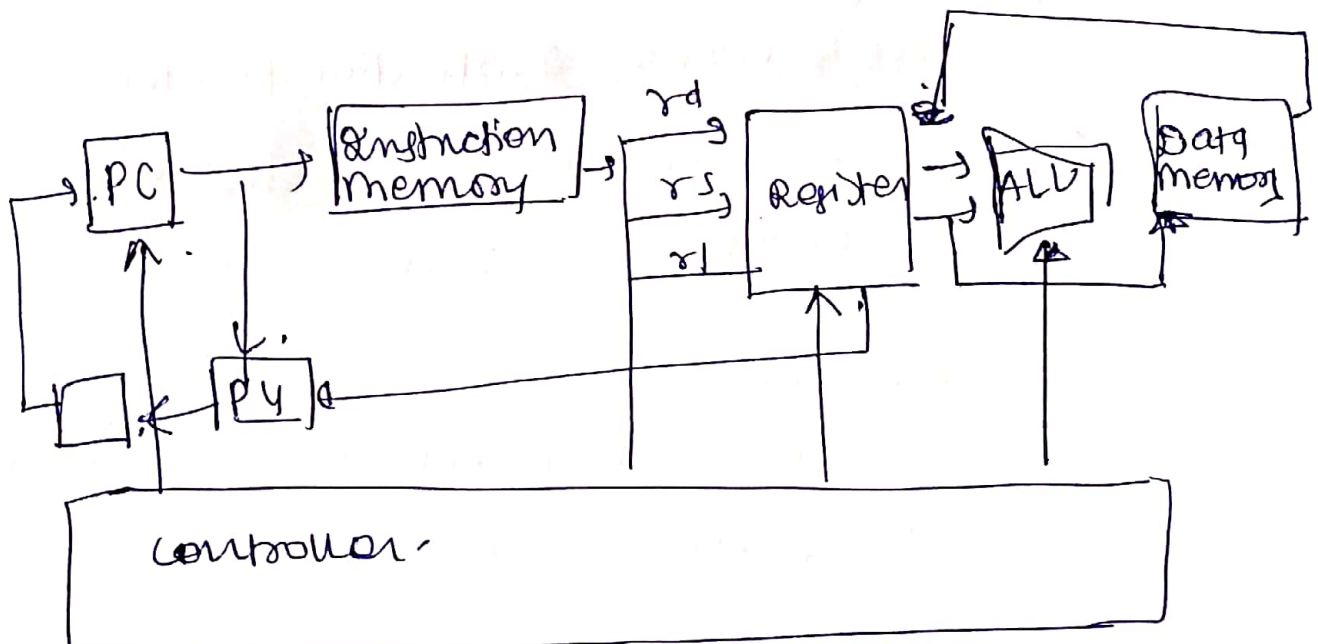 rd
PC
Instruction
memory
rs
Register
ALU
Data
memory
rt
P4
controller.